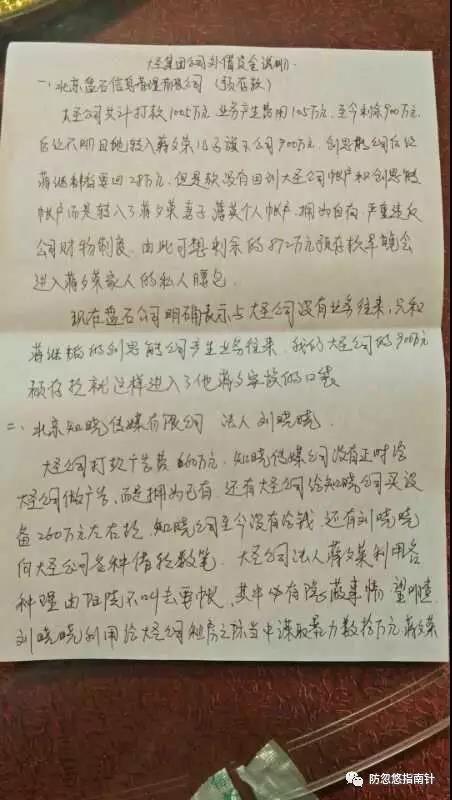 大圣集团公司外借资金说明
一、北京盘石信息管理有限公司（预存款）
大圣公司共计打款1005万元 业务产生费用105万元，至今剩余900万元
后处不明目地转入蒋文荣儿子旗下公司900万元，创思能公司在经
蒋继梅手要回28万元，但是款没有回到大圣公司帐户和创思能
帐户而是转入了蒋文荣妻子 薄英个人帐户，拥为自有 严重违反
公司财物制度，由此可想剩余的872万元预存款早晚会
进入蒋文荣家人的私人腰包
现在盘石公司明确表示与大圣公司没有业务往来，只和
蒋继梅的创思能公司产生业务往来，我们大圣公司的900万元
预存款就这样进入了他蒋文荣家族的口袋
二、北京知晓传媒有限公司 法人 刘晓晓
大圣公司打款广告费660万元，知晓传媒公司没有正时给
大圣公司做广告，而是拥为己有，还有大圣公司给知晓公司买设
备260万元左右款，知晓公司至今没有给钱，还有刘晓晓
向大圣公司各种借款数笔，大圣公司法人蒋文荣利用各
种理由阻挠不叫去要帐，其中必有隐蔽事情 望明查
刘晓晓利用给大圣公司租房之际当中谋取暴力数拾万元 蒋文荣
防忽悠指南针